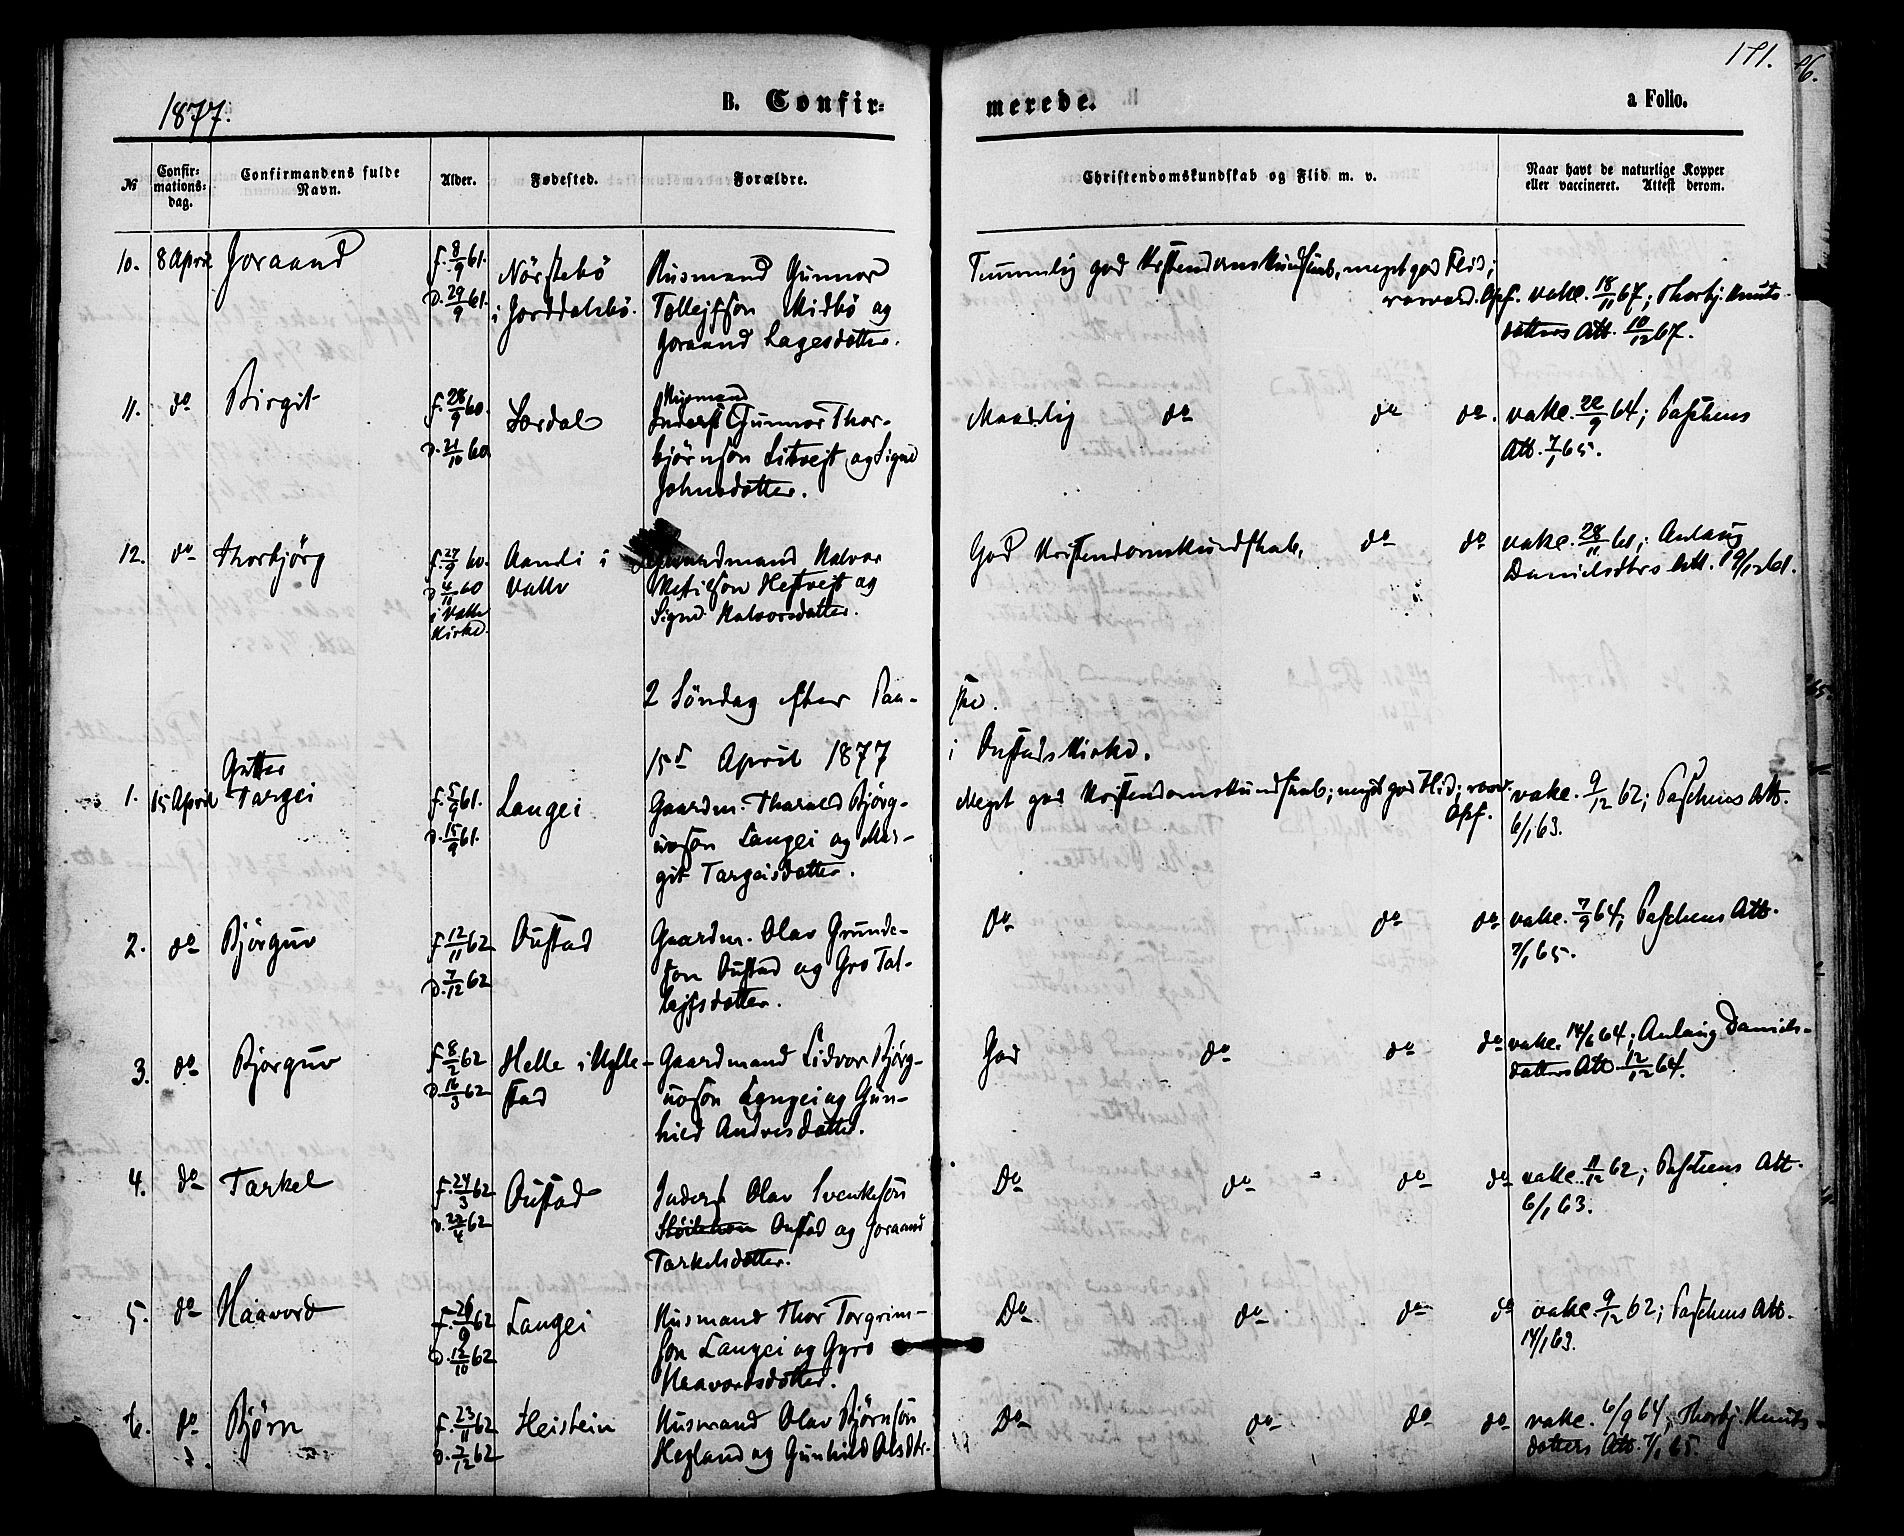 171.
1877.
B. Confir-
merede.
a Folio.
№
Confir-
mations-
dag.
Confirmandens fulde
Navn.
Alder.
Fødested.
Forældre.
Christendomskundskab og Flid m. v.
Naar havt de naturlige Kopper
eller vaccineret. Attest derom.
10. 8 April Joraand f. 8/9 61. D. 29/9 61. Nörstebö
i Jorddalsbö.
Husmand Gunnar
Tollejfson Midbö og
Joraand Lagesdotter.
Temmelig god Kristendomskundskab, meget god Flid;
Opf. vakc. 18/11 67; Thorbj. Knuts-
datters Att. 10/12 67.
11. do Birgit f. 28/9 60. D. 21/10 60 Lordal
Husmand
Inderst Gunnar Thor-
björnson Litvejt og Signe
Johnsdotter.
Maadelig do do do. vakc. 22/9 64; Paschens
Att. 7/1 65.
12. do Thorbjörg f. 27/9 60. D. 4/11 60
i Valle
Kirke.
Aamli i
Valle
Gaardmand Halvor
Ketilson Hefvejt og
Signe Halvorsdatter.
God Kristendomskundskab, do do vakc. 28/11 61; Anlaug
Danielsdtrs Att. 19/12 61.
2 Söndag efter Paa-
ske.
15d April 1877
i Oustads Kirke.
Gutter
1. 15 April Targei f. 5/9 61. D. 15/9 61. Langei
Gaardm. Tharald Björg-
uvson Langei og Mar-
git Targeisdotter.
Meget god Kristendomskundskab; meget god Flid;
Opf.
vakc. 9/12 62; Paschens Att.
6/1 63.
2. do Björguv f. 12/11 62 D. 7/12 62 Oustad
Gaardm. Olav Grunde-
son Oustad og Gro Tal-
lejfsdotter.
Do do do vakc. 7/9 64; Paschens Att.
7/1 65.
3. do Björguv f. 8/2 62 D. 16/3 62 Helle i Hylle-
stad
Gaardmand Lidvor Björg-
uvson Langei og Gun-
hild Andresdatter.
God do do do vakc. 14/6 64; Anlaug Daniels-
datters Att. 12/12 64.
4. do Tarkel f. 24/3 62 D. 22/4 62 Oustad
Inderst Olav Svenkeson
Oustad og Joraand
Tarkelsdotter.
Do do do do vakc. 11/12 62; Paschens Att.
6/1 63.
5. do Haavord f. 26/9 62 D. 12/10 62 Langei
Husmand Thor Torgrim-
son Langei og Gyro
Haavordsdotter.
Do do do do vakc. 9/12 62; Paschens Att.
14/1 63.
6. do Björn f. 23/11 62 D. 7/12 62 Heistein
Husmand Olav Björnson
Hegland og Gunhild Olsdtr.
Do do do do vakc. 6/9 64; Thorbj. Knuts-
datters Att. 7/1 65.